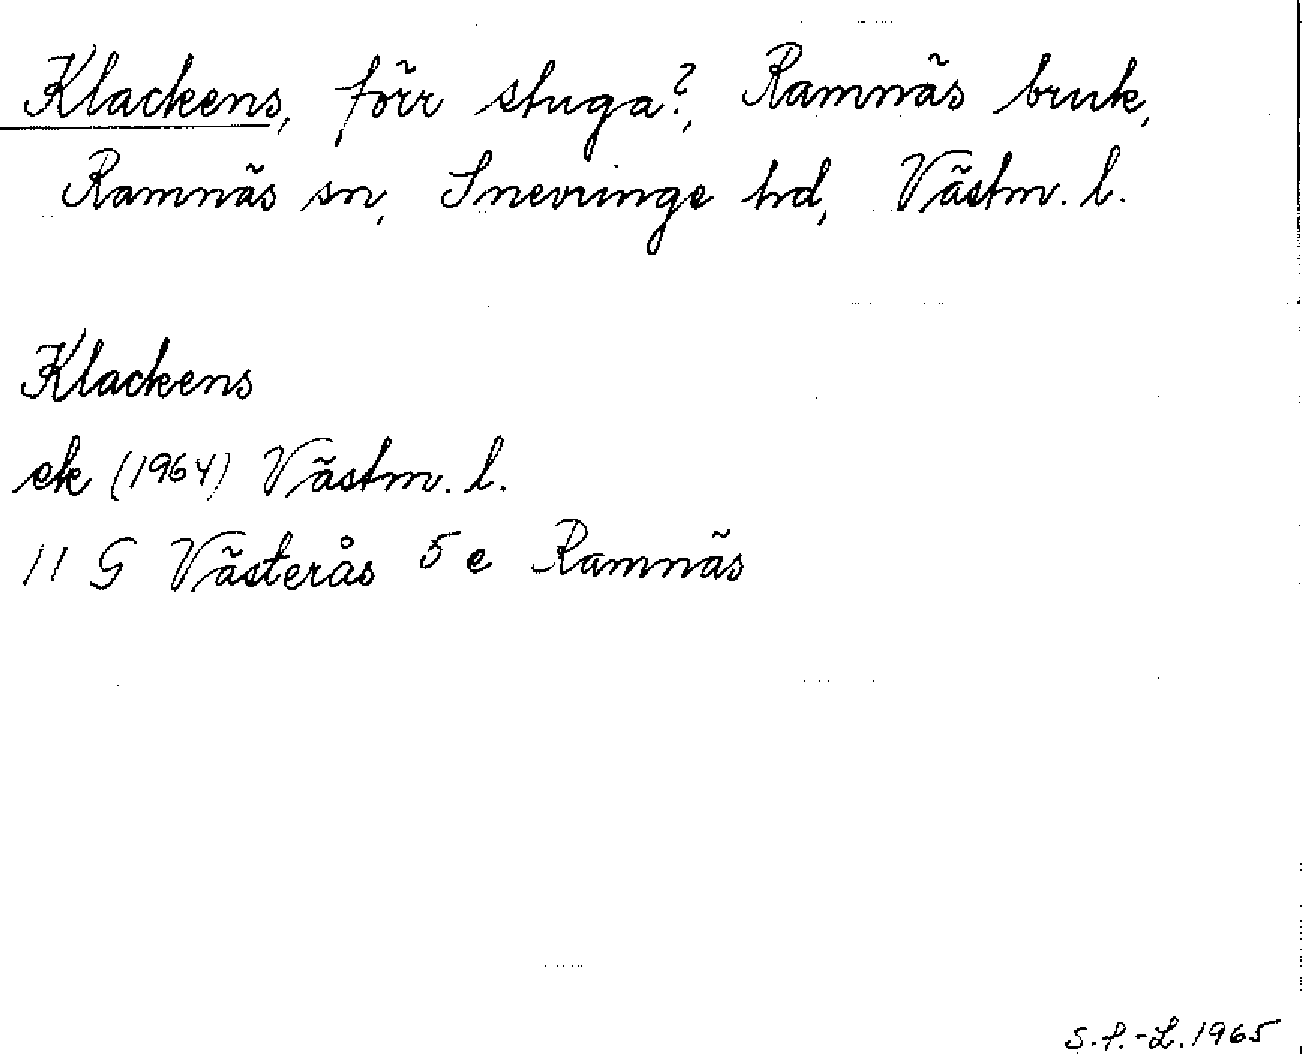 Klackens, förr stuga?, Ramnäs bruk,
Ramnäs sn, Snevringe hd, Västm. l.
Klackens
ek (1964) Västm. l.
11 G Västerås 5 e Ramnäs
S.P.-L. 1965